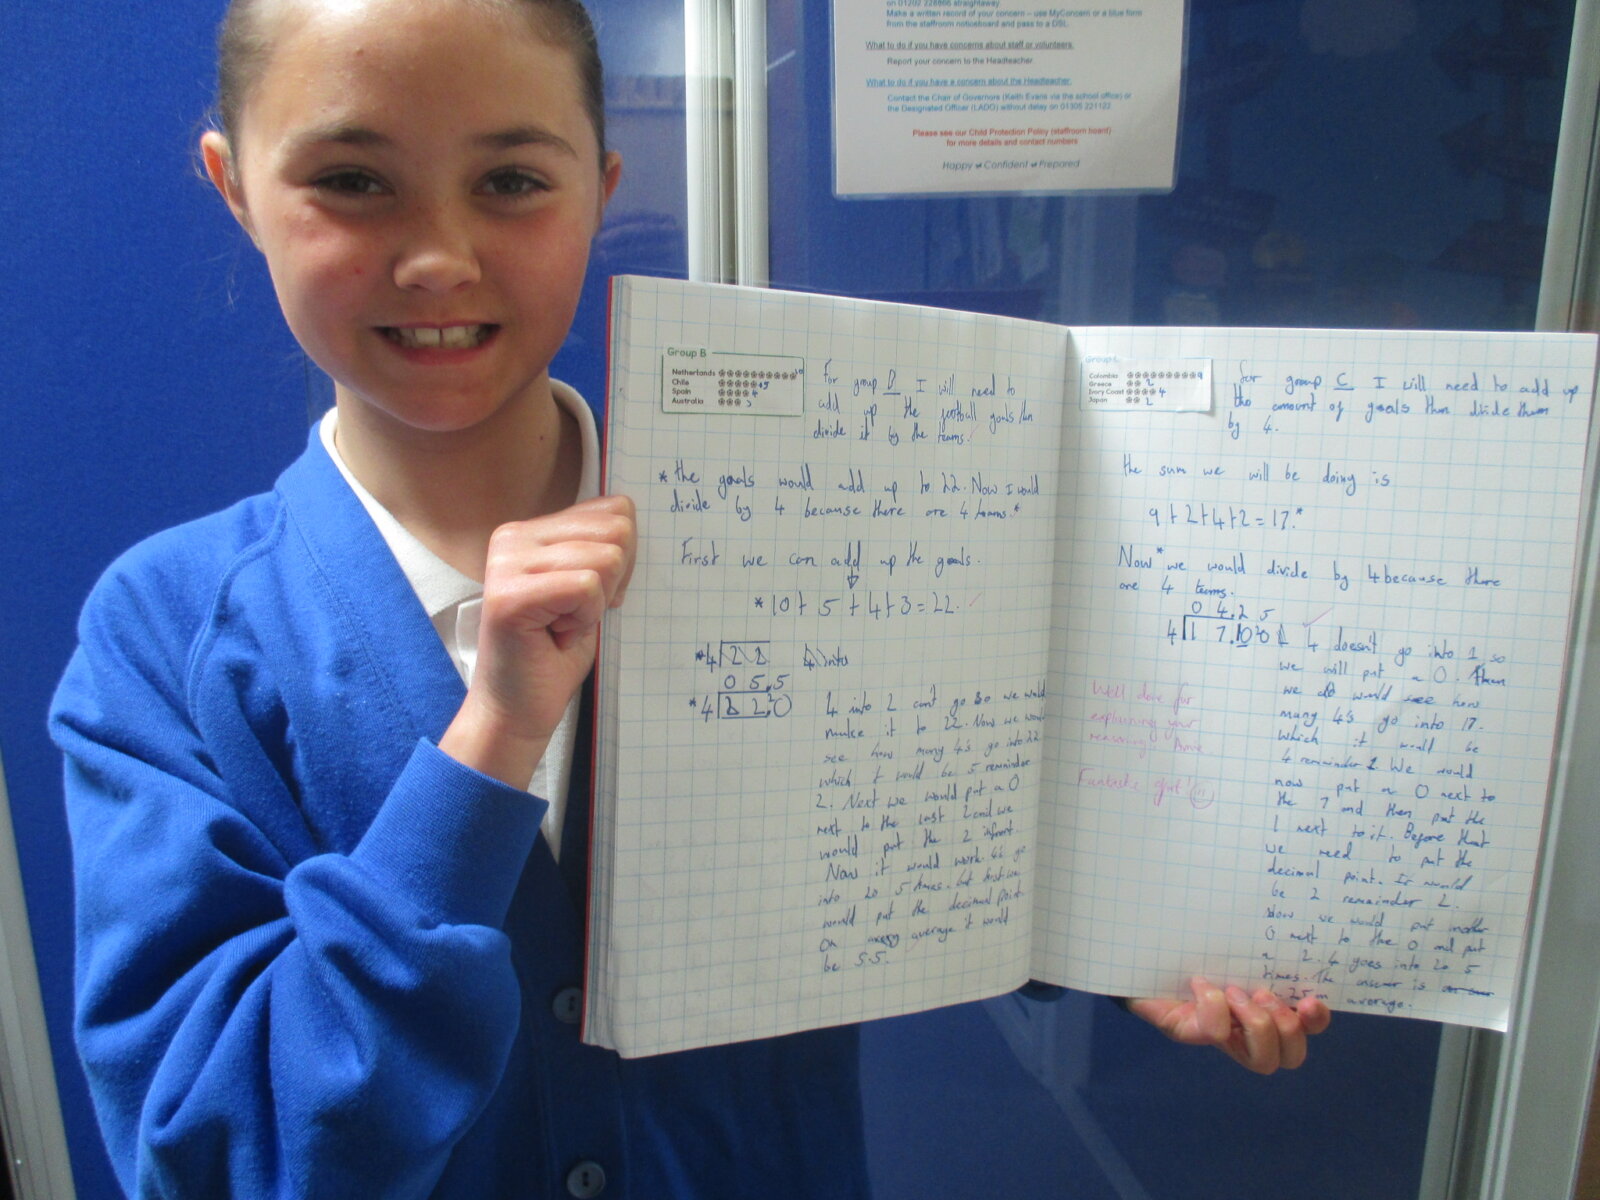 on 01202 228866 straightaway.
Make a written record of your concern – use MyConcern or a blue form
from the staffroom noticeboard and pass to a DSL.
What to do if you have concerns about staff or volunteers.
Report your concern to the Headteacher.
What to do if you have a concern about the Headteacher.
Contact the Chair of Governors (Keith Evans via the school office) or
the Designated Officer (LADO) without delay on 01305 221122.
Please see our Child Protection Policy (staffroom board)
for more details and contact numbers
Happy Confident Prepared
Group B
Netherlands 10
Chile 5
Spain 4
Australia 3
For group B I will need to
add up the football goals then
divide it by the teams.
* the goals would add up to 22. Now I would
divide by 4 because there are 4 teams.*
First we can add up the goals.
*10 + 5 + 4 + 3 = 22.
*4 22 4 into
0 5.5
*4 22.20
4 into 2 can't go so we would
make it to 22. Now we would
see how many 4s go into 22
which it would be 5 remainder
2. Next we would put a 0
next to the last 2 and we
would put the 2 infront.
Now it would work. 4s go
into 20 5 times. but first we
would put the decimal point.
On average it would
be 5.5.
Group C
Colombia 9
Greece 2
Ivory Coast 4
Japan 2
for group C I will need to add up
the amount of goals then divide them
by 4.
the sum we will be doing is
9 + 2 + 4 + 2 = 17.*
Now* we would divide by 4 because there
are 4 teams.
0 4.2 5
4 1 7.1020
4 doesn't go into 1 so
we will put a 0. Then
we would see how
many 4s go into 17.
which it would be
4 remainder 1. We would
now put a 0 next to
the 7 and then put the
1 next to it. Before that
we need to put the
decimal point. It would
be 2 remainder 2.
Now we would put another
0 next to the 0 and put
a 2. 4 goes into 20 5
times. The answer is
4.25 in average.
Well done for
explaining your
reasoning
Fantastic